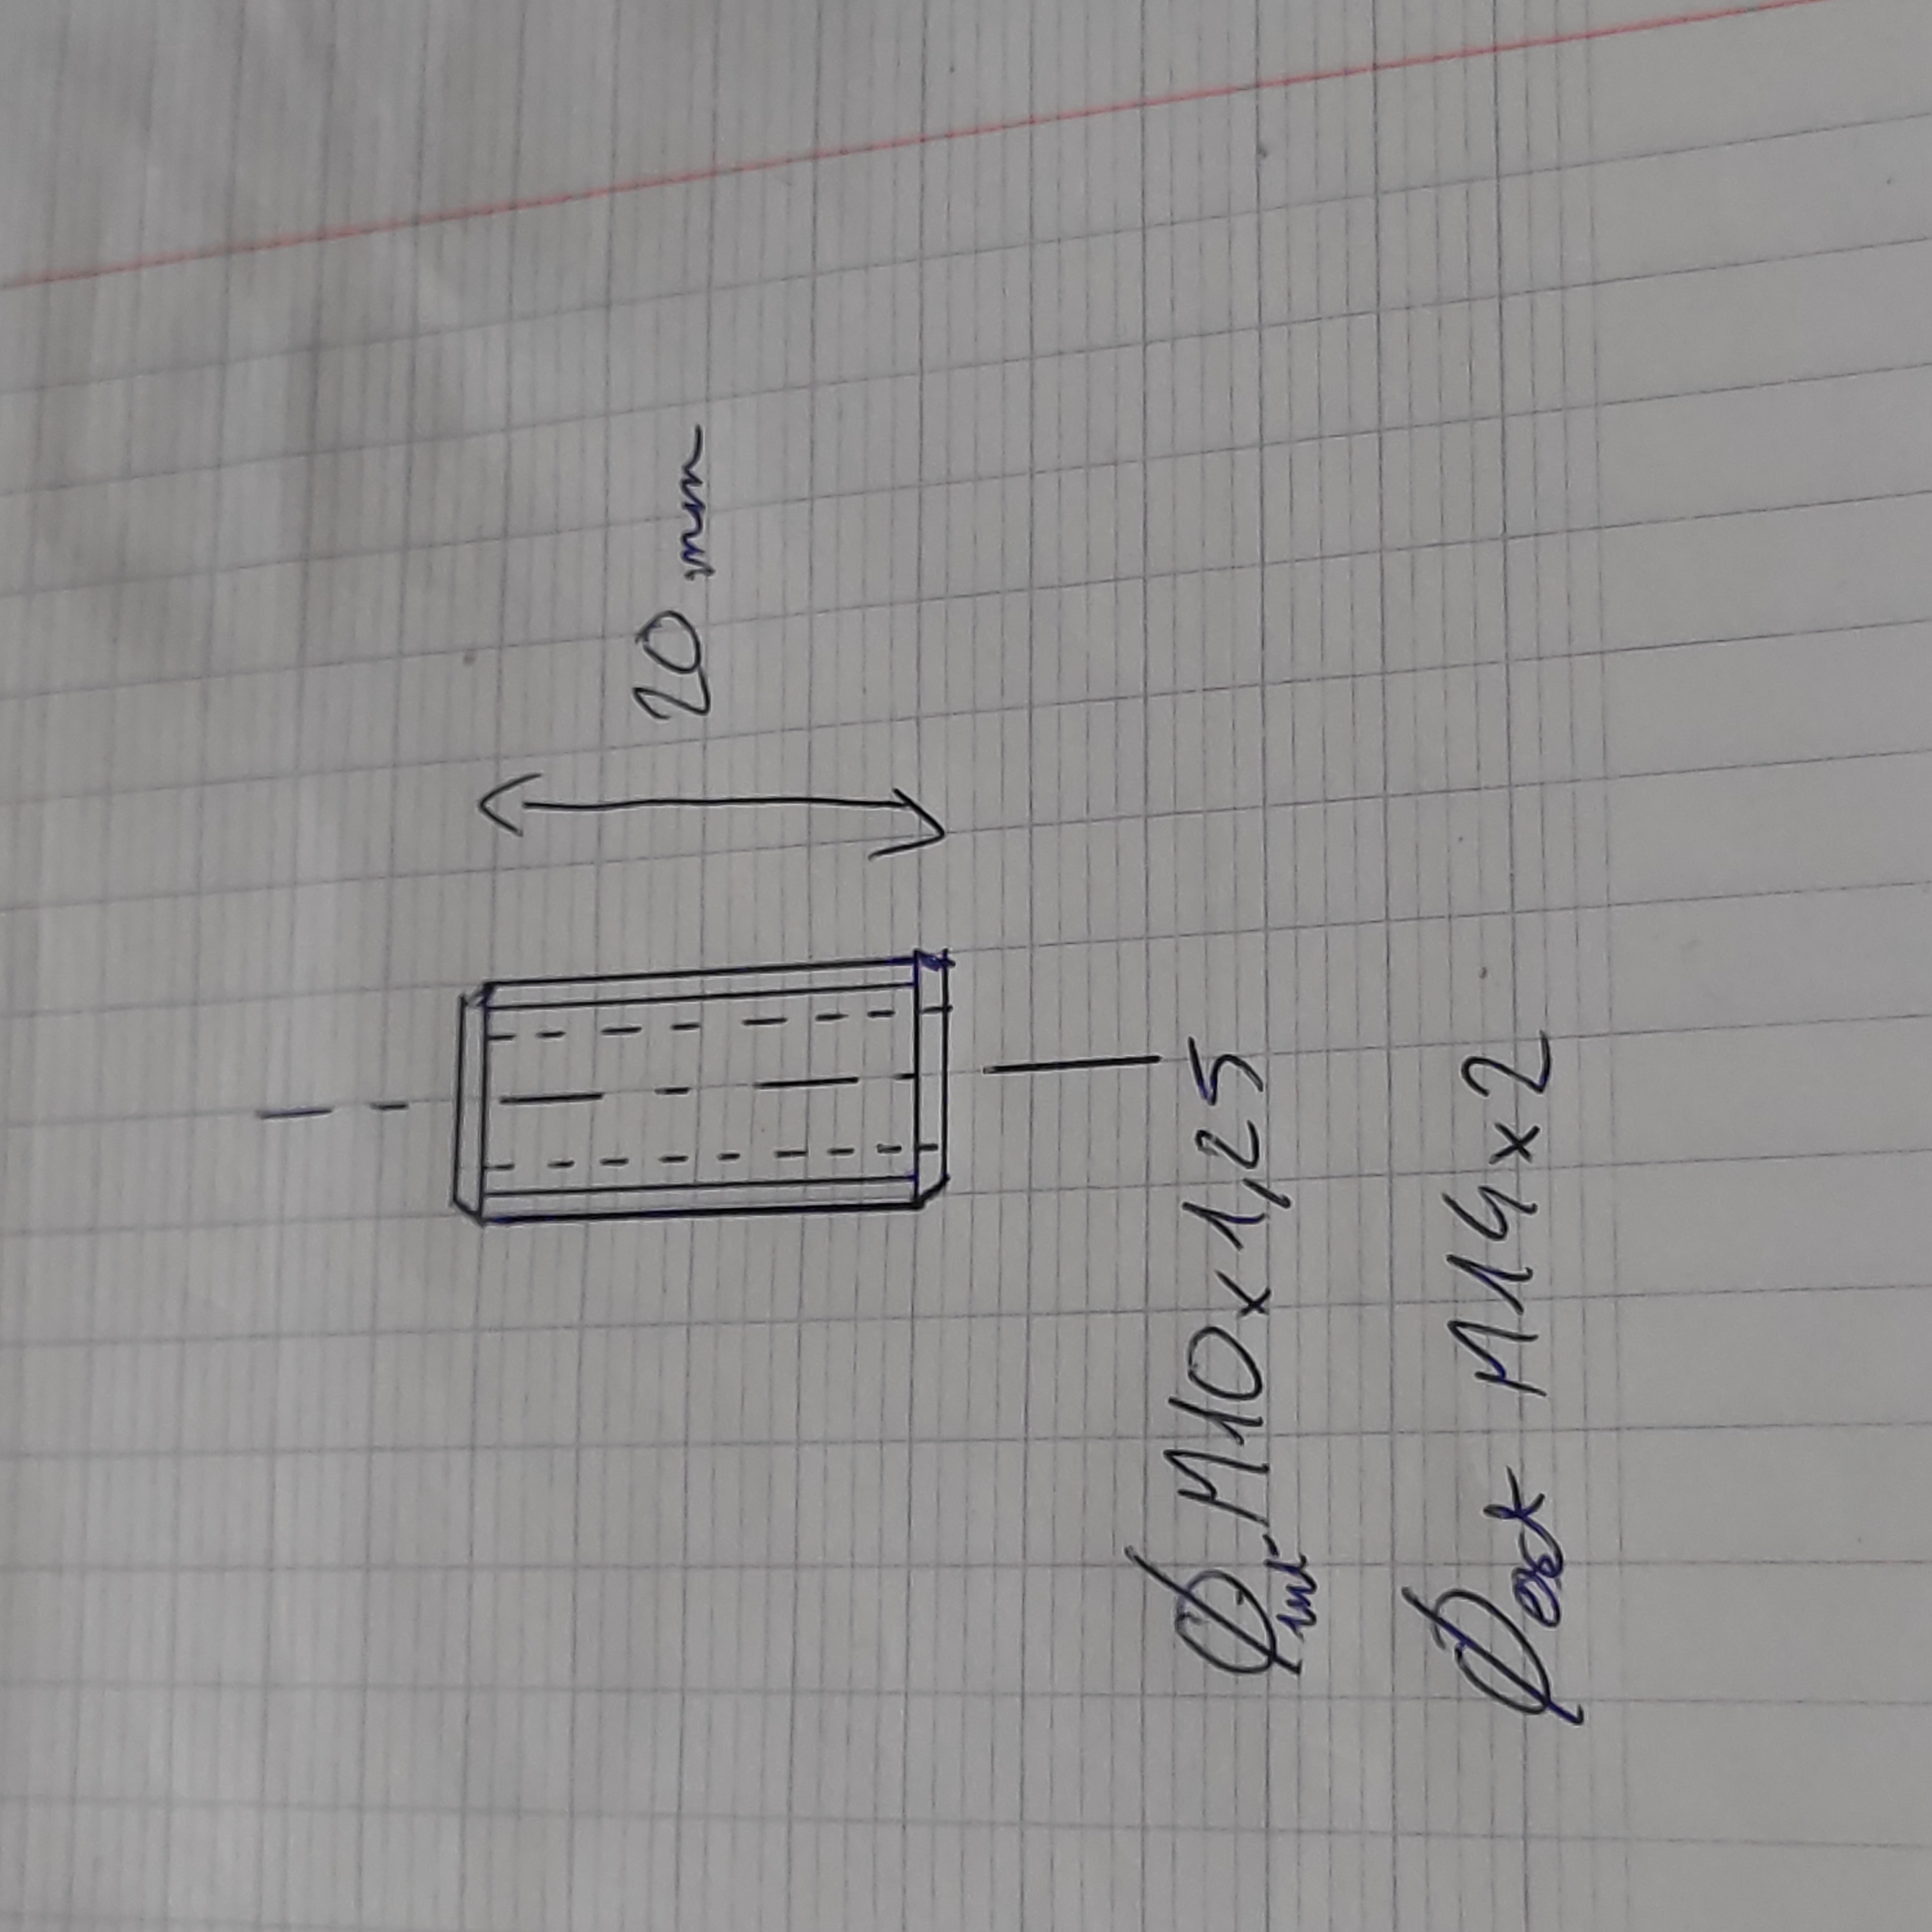 20 mm
Ø int M10x1,25
Ø ext M14x2